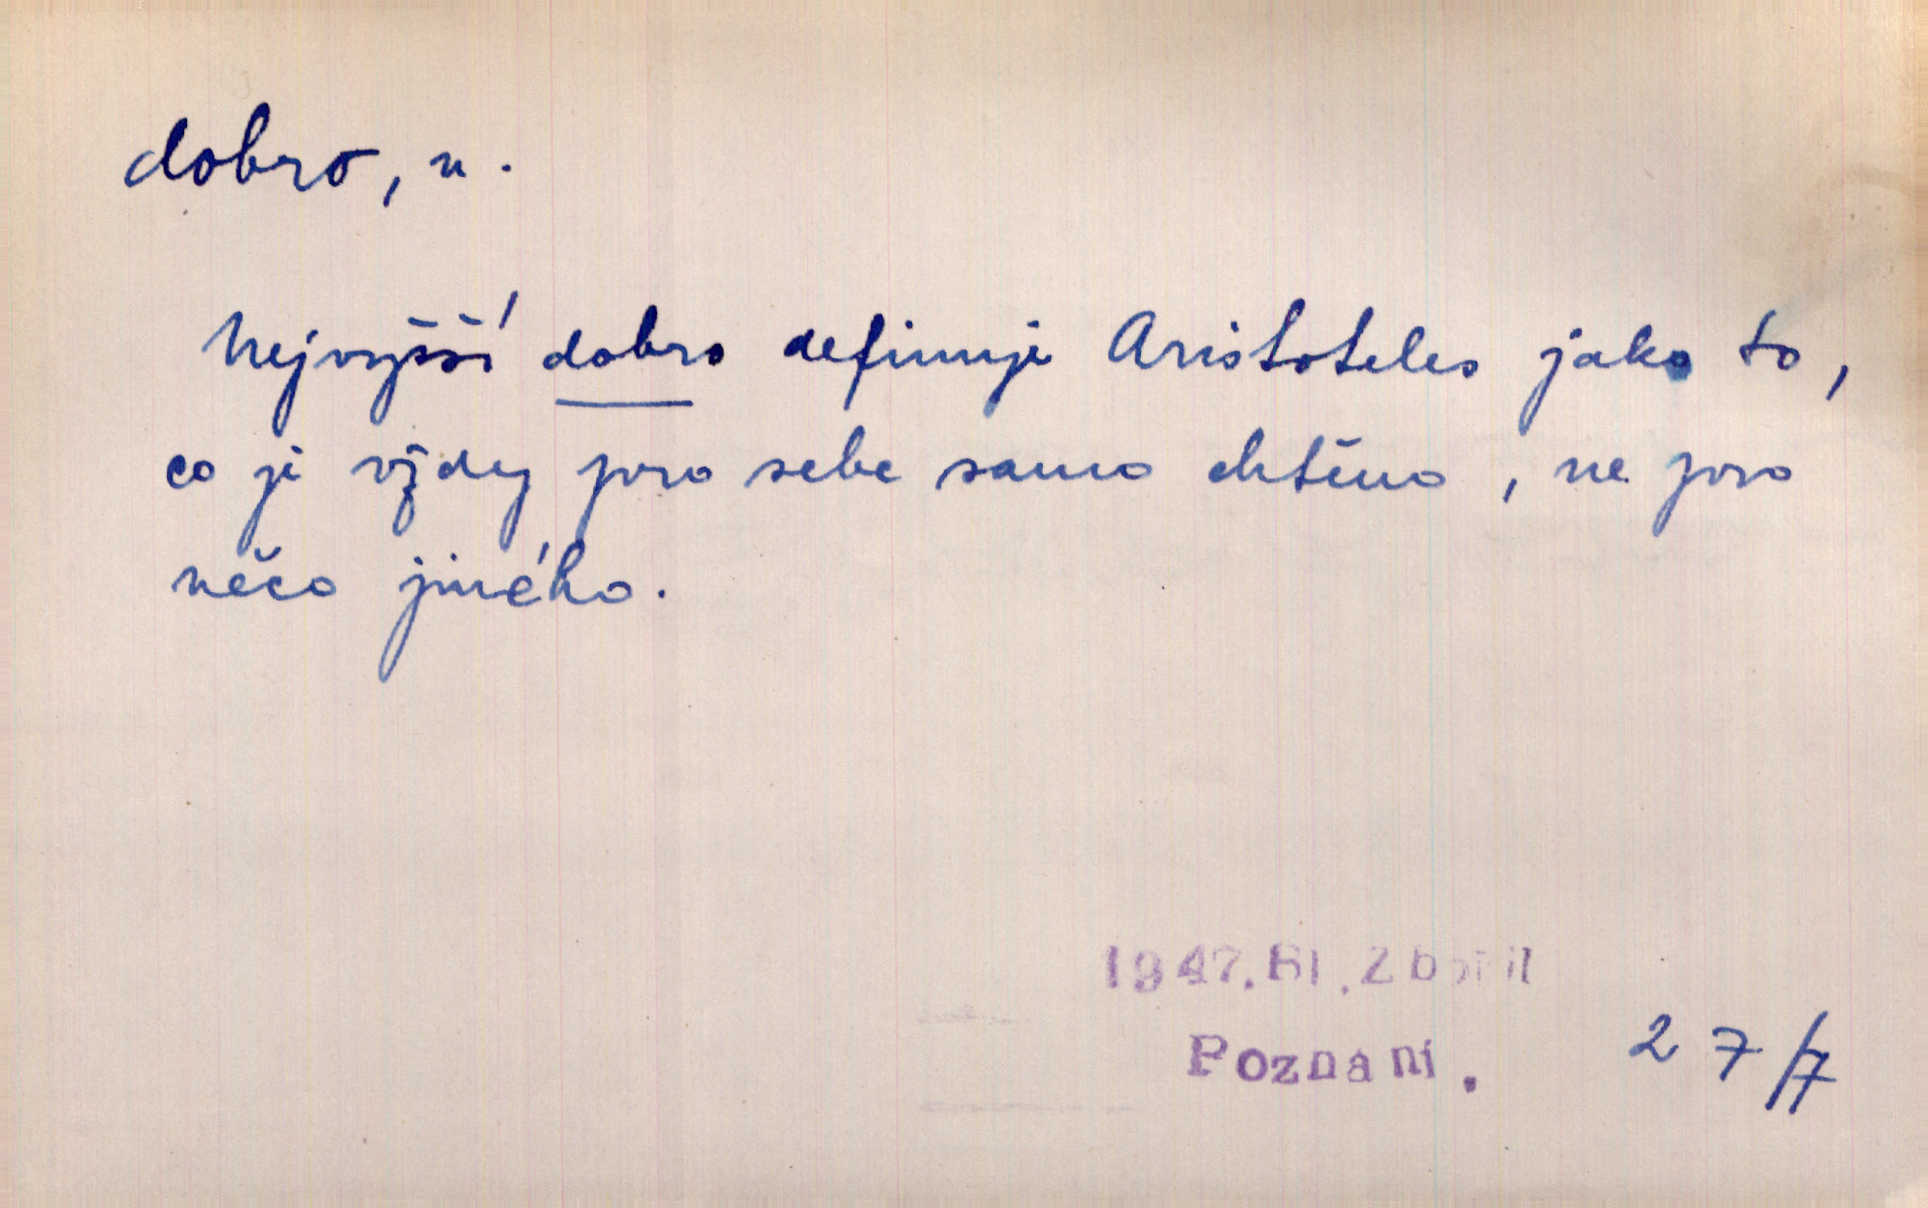 dobro, n.
Nejvyšší dobro definuje Aristoteles jako to,
co je vždy pro sebe samo chtěno, ne pro
něco jiného.
1947.Bl.Zbořil
Poznání.
27/7